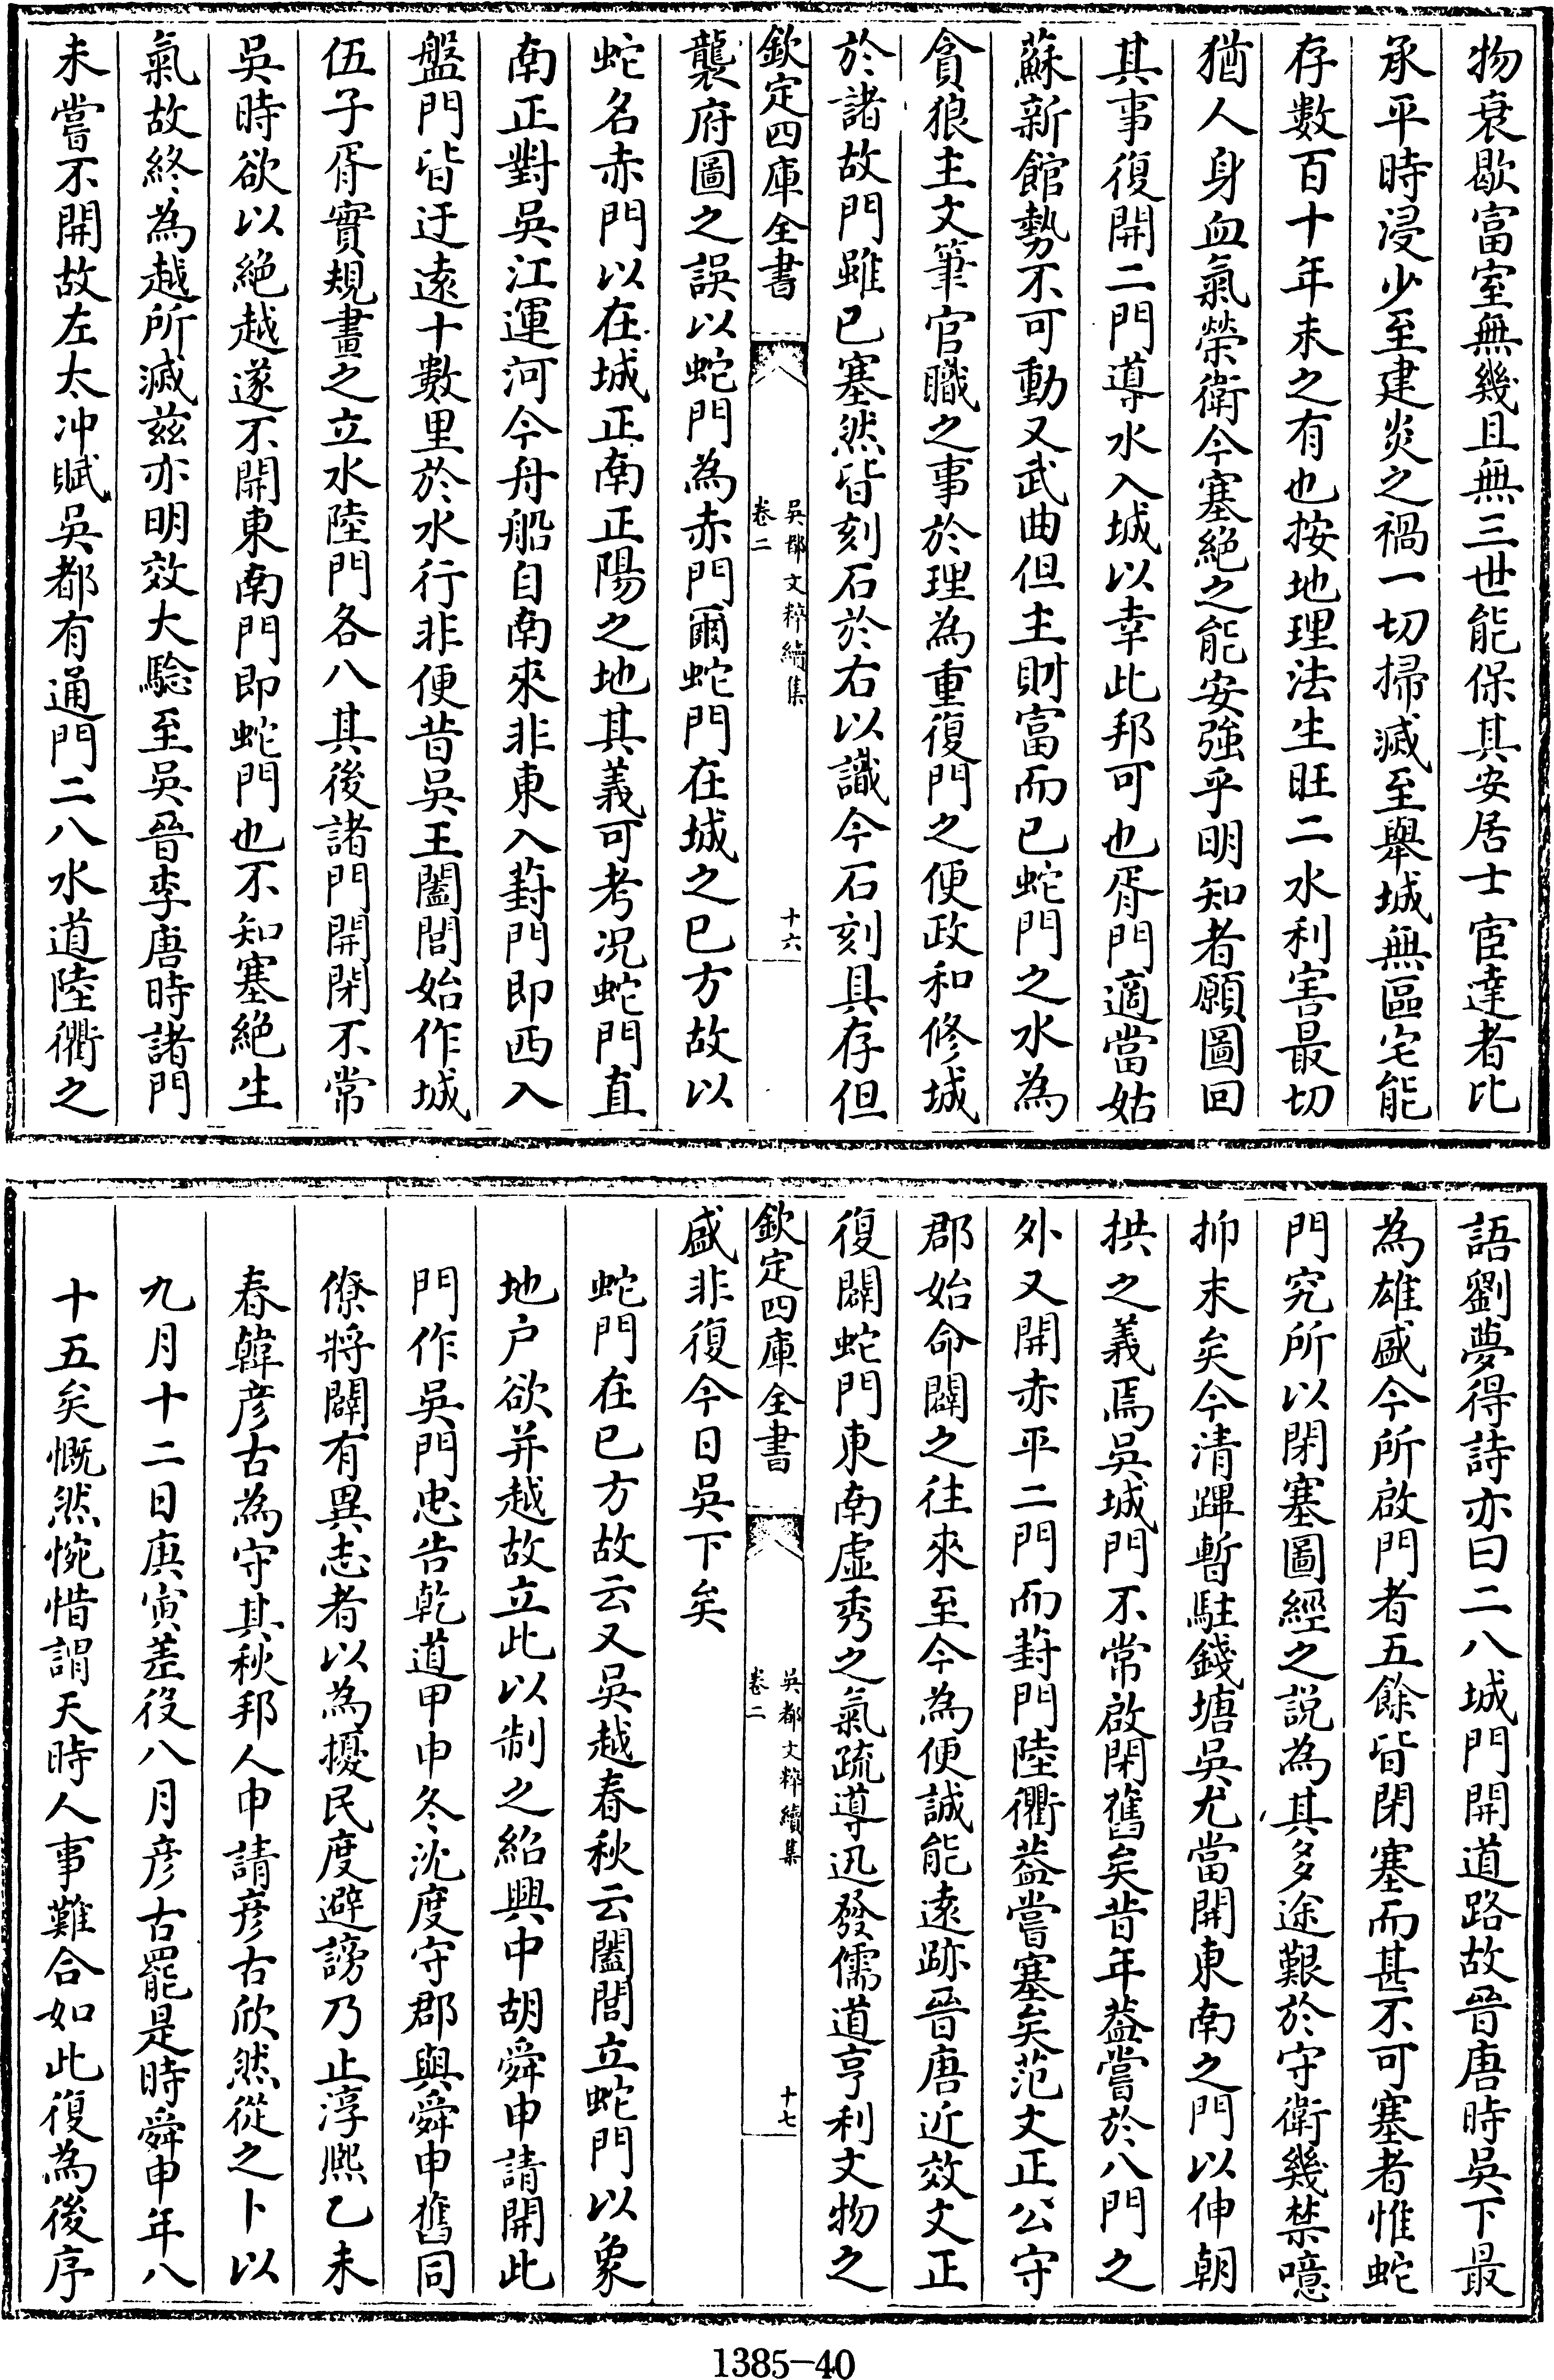 物衰歇富室無幾且無三世能保其安居士宦達者比
承平時浸少至建炎之禍一切掃滅至舉城無區宅能
存數百十年未之有也按地理法生旺二水利害最切
猶人身血氣榮衛今塞絕之能安強乎明知者願圖回
其事復開二門導水入城以幸此邦可也胥門適當姑
蘇新館勢不可動又武曲但主財富而已蛇門之水為
貪狼主文筆官職之事於理為重復門之便政和修城
於諸故門雖已塞然皆刻石於右以識今石刻具存但
欽定四庫全書
吳都文粹續集
卷二
十六
襲府圖之誤以蛇門為赤門爾蛇門在城之巳方故以
蛇名赤門以在城正南正陽之地其義可考況蛇門直
南正對吳江運河今舟船自南來非東入葑門即西入
盤門皆迂遠十數里於水行非便昔吳王闔閭始作城
伍子胥實規畫之立水陸門各八其後諸門開閉不常
吳時欲以絕越遂不開東南門即蛇門也不知塞絕生
氣故終為越所滅茲亦明效大驗至吳晉李唐時諸門
未嘗不開故左太冲賦吳都有通門二八水道陸衢之
語劉夢得詩亦曰二八城門開道路故晉唐時吳下最
為雄盛今所啟門者五餘皆閉塞而甚不可塞者惟蛇
門究所以閉塞圖經之說為其多途艱於守衛幾禁噫
抑末矣今清蹕暫駐錢塘吳尤當開東南之門以伸朝
拱之義焉吳城門不常啟閉舊矣昔年葢嘗於八門之
外又開赤平二門而葑門陸衢葢嘗塞矣范文正公守
郡始命闢之往來至今為便誠能遠跡晉唐近效文正
復闢蛇門東南虛秀之氣疏導迅發儒道亨利文物之
欽定四庫全書
吳都文粹續集
卷二
十七
盛非復今日吳下矣
蛇門在巳方故云又吳越春秋云闔閭立蛇門以象
地户欲并越故立此以制之紹興中胡舜申請開此
門作吳門忠告乾道甲申冬沈度守郡與舜申舊同
僚將闢有異志者以為擾民度避謗乃止淳熙乙未
春韓彥古為守其秋邦人申請彥古欣然從之卜以
九月十二日庚寅差役八月彥古罷是時舜申年八
十五矣慨然惋惜謂天時人事難合如此復為後序
1385-40